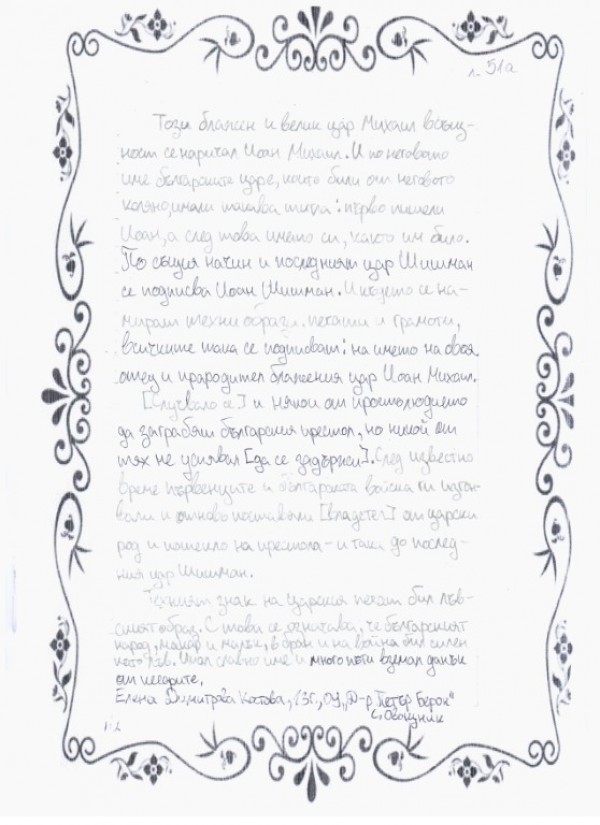 л. 51а
Този блажен и велик цар Михаил всъщ-
ност се наричал Иоан Михаил. И по неговото
име българските царе, които били от неговото
коляно, имали такава титла: първо пишели
Иоан, а след това името си, както им било.
По същия начин и последният цар Шишман
се подписва Иоан Шишман. И където се на-
мирали техни образи, печати и грамоти,
всичките така се подписват: на името на своя
отец и прародител блажения цар Иоан Михаил.
[Случвало се] и някои от простолюдието
да заграбят българския престол, но никой от
тях не успявал [да се задържи]. След известно
време първенците и българската войска ги изгон-
вали и отново поставяли [владетел] от царски
род и потекло на престола – и така до послед-
ния цар Шишман.
Техният знак на царския печат бил лъв-
ският образ. С това се означава, че българският
народ, макар и малък, в бран и на война бил силен
като лъв. Имал славно име и много пъти вземал данък
от кесарите,
Елена Димитрова Костова, 13г., ОУ "Д-р Петър Берон"
с. Овощник